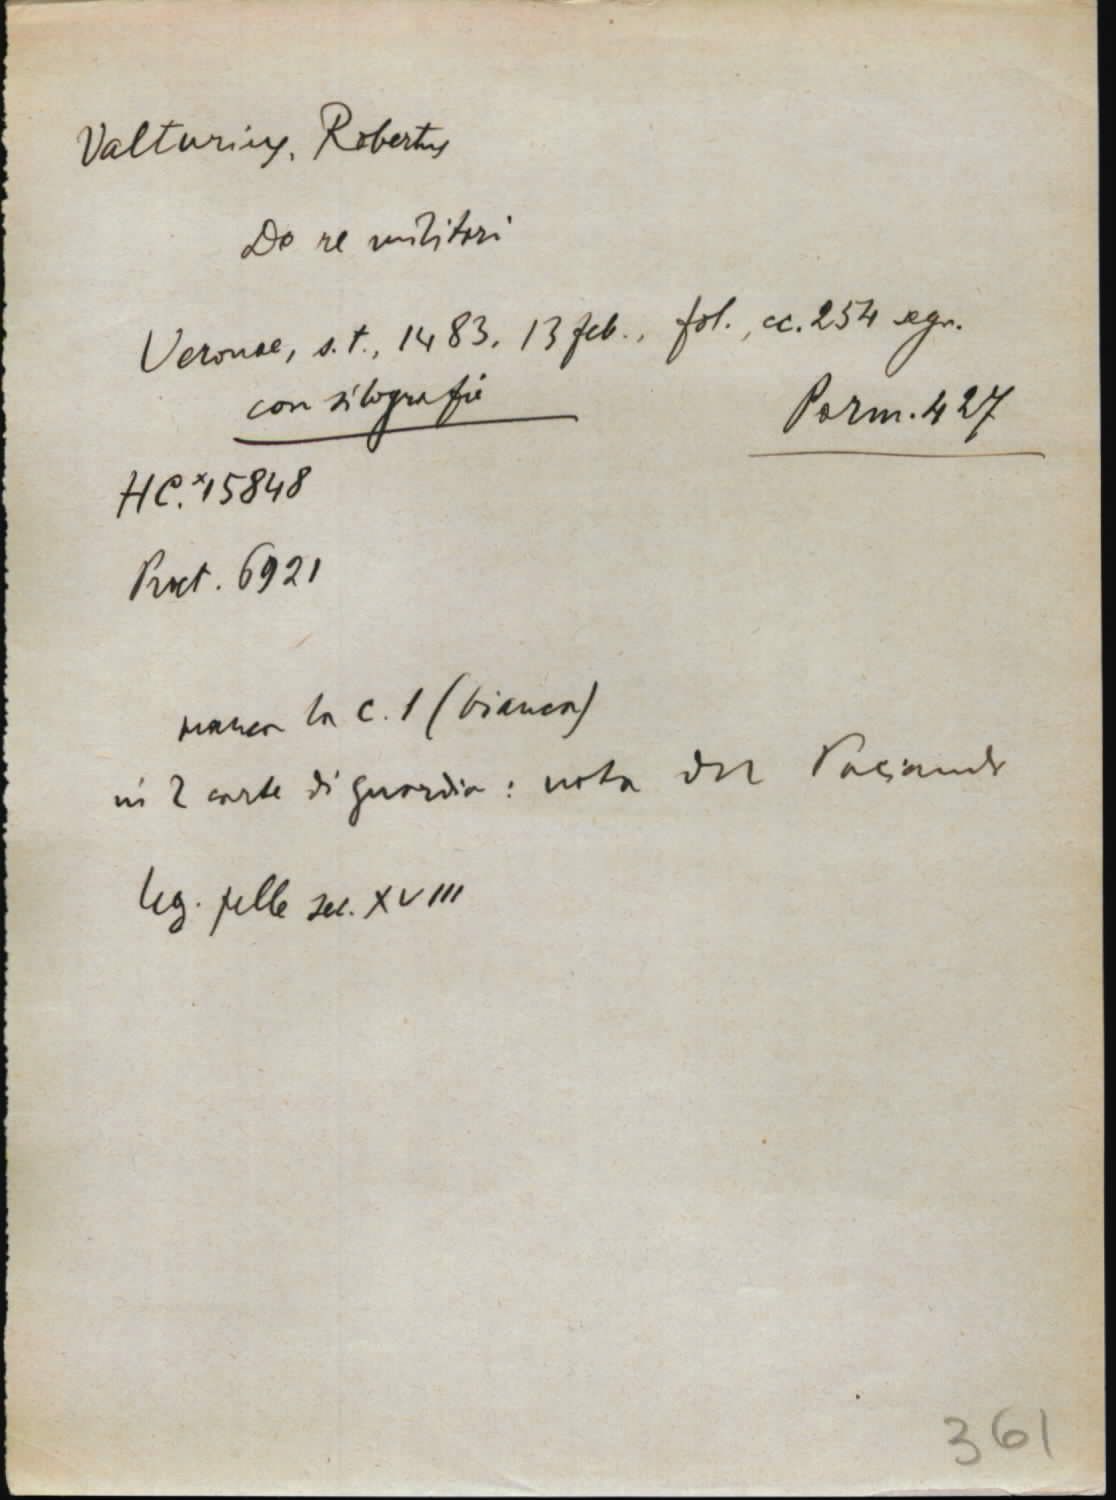 Valturius, Robertus
De re militari
Veronae, s.t., 1483, 13 feb., fol., cc. 254 segn.
con silografie
Parm. 427
HC.*15848
Proct. 6921
manca la c. 1 (bianca)
in 2 carte di guardia: nota del Paciaudi
leg. pelle sec. XVIII
361